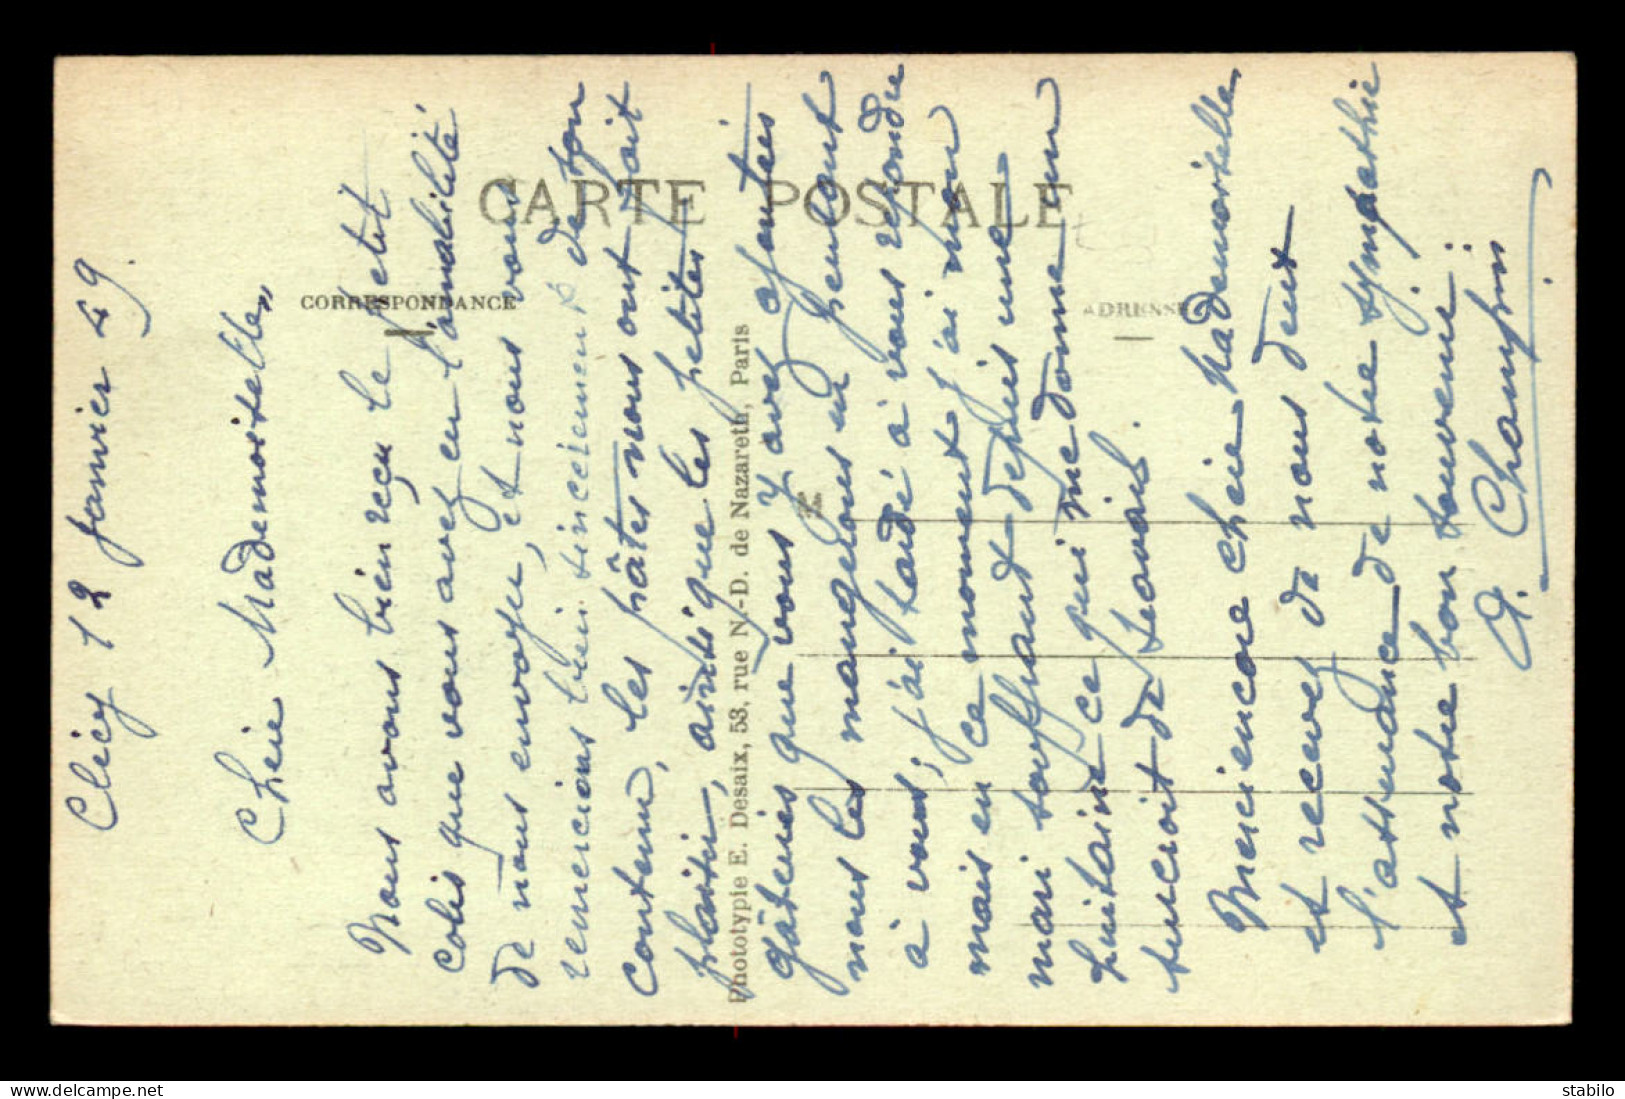 CARTE POSTALE
CORRESPONDANCE
ADRESSE
Phototypie E. Desaix, 53, rue N.-D. de Nazareth, Paris
Clécy 12 janvier 49.
Chère Mademoiselle,
Nous avons bien reçu le petit
colis que vous avez eu l'amabilité
de nous envoyer, et nous vous
remercions bien sincèrement de son
contenu, les pâtes nous ont fait
plaisir, ainsi que les petites
gâteries que vous y avez ajoutées
nous les mangerons en pensant
à vous, j'ai tardé à vous répondre
mais en ce moment j'ai mon
mari souffrant depuis une
huitaine ce qui me donne un
surcroit de travail.
Merci encore chère Mademoiselle,
et recevez de nous deux
l'assurance de notre sympathie
et notre bon souvenir.
delcampe.net
stabilo